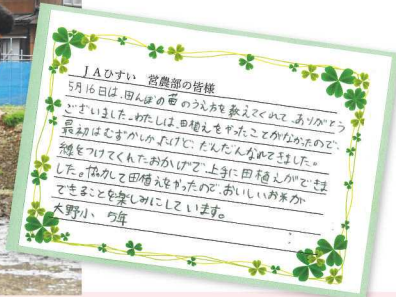 ＪＡひすい　営農部の皆様
5月16日は、田んぼの苗のうえ方を教えてくれて、ありがとう
ございました。わたしは、田植えをやったことがなかったので、
最初はむずかしかったけど、だんだんなれてきました。
線をつけてくれたおかげで、上手に田植えができま
した。協力して田植えをやったので、おいしいお米が
できることを楽しみにしています。
大野小　5年